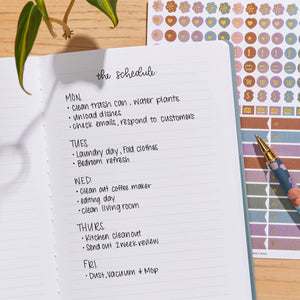 the schedule
MON
• Clean trash can, Water plants
• Unload dishes
• Check emails, respond to customers
TUES
• Laundry day, Fold clothes
• Bedroom refresh
WED
• Clean out coffee maker
• editing day
• Clean living room
THURS
• Kitchen cleanout
• Send out 2 week review
FRI
• Dust, Vacuum + Mop